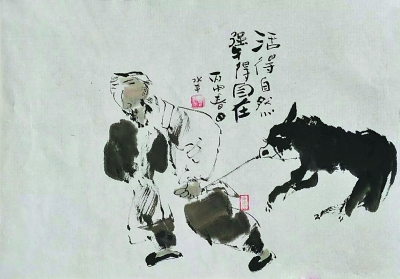 活得自然
犟得
在
丙申春日